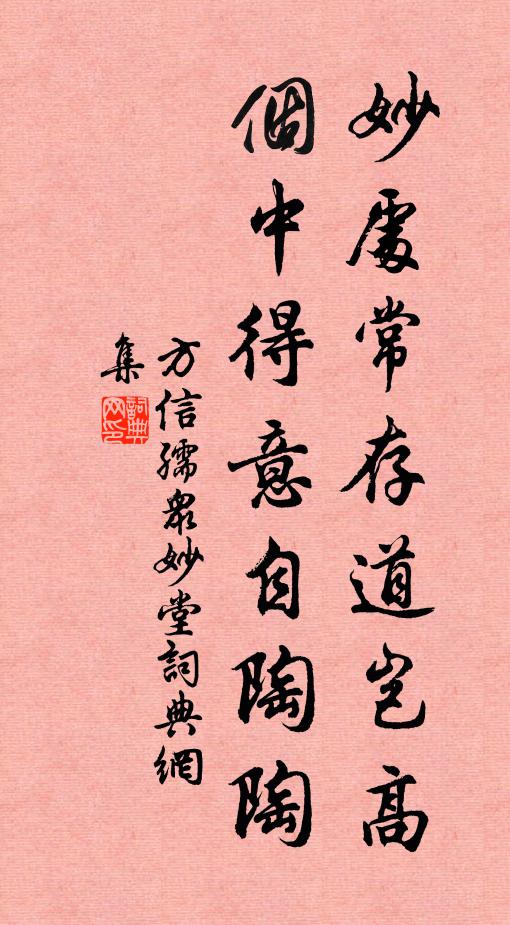 妙處常存道豈高
個中得意自陶陶
方信孺眾妙堂詞典網
集
詞典網印